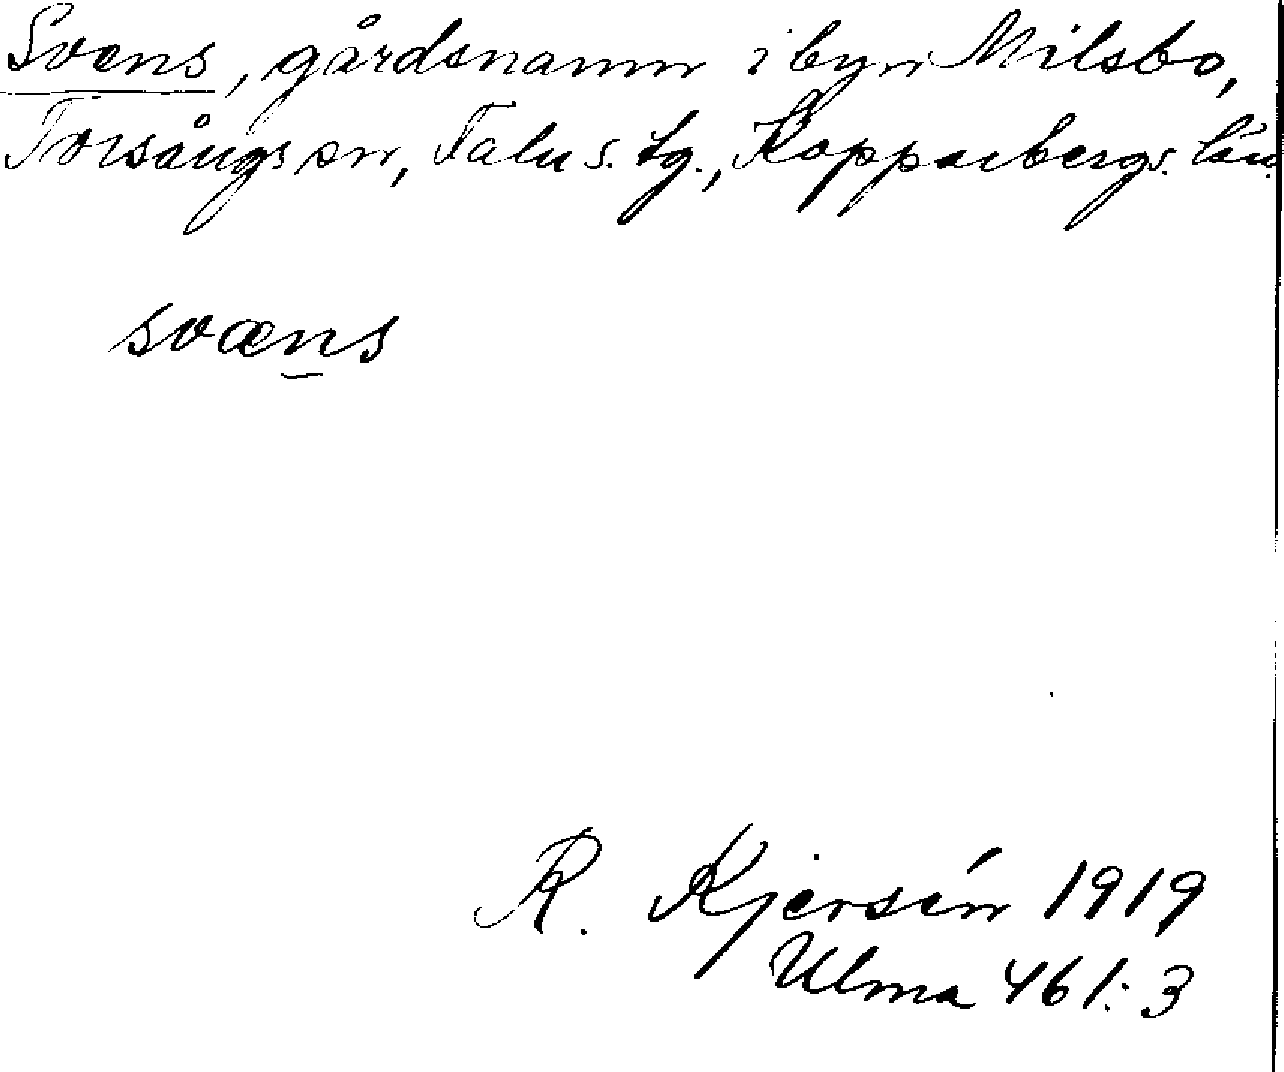 Svens, gårdsnamn i byn Milsbo,
Torsångs sn, Falu s. tg., Kopparbergs. län.
svæns
R. Kjersén 1919
Ulma 461:3